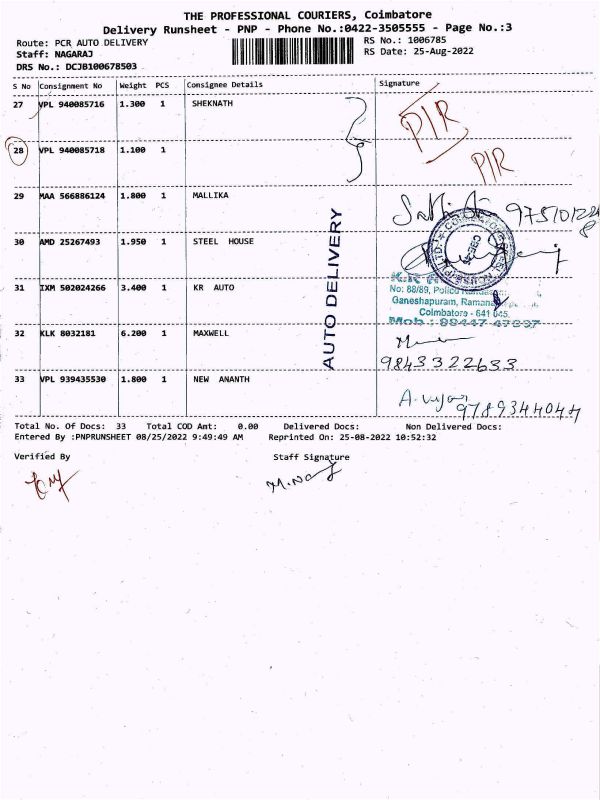 THE PROFESSIONAL COURIERS, Coimbatore
Delivery Runsheet - PNP - Phone No.:0422-3505555 - Page No.:3
Route: PCR AUTO DELIVERY RS No.: 1006785
Staff: NAGARAJ RS Date: 25-Aug-2022
DRS No.: DCJB100678503
S No Consignment No Weight PCS Consignee Details Signature
27 VPL 940085716 1.300 1 SHEKNATH P/R
28 VPL 940085718 1.100 1 P/R
29 MAA 566886124 1.800 1 MALLIKA
30 AMD 25267493 1.950 1 STEEL HOUSE
31 IXM 502024266 3.400 1 KR AUTO
No: 88/89, Police
Ganeshapuram,
Coimbatore - 641 045.
Mob : 98447 47837
32 KLK 8032181 6.200 1 MAXWELL
9843322633
33 VPL 939435530 1.800 1 NEW ANANTH
9789344044
AUTO DELIVERY
Total No. Of Docs: 33 Total COD Amt: 0.00 Delivered Docs: Non Delivered Docs:
Entered By :PNPRUNSHEET 08/25/2022 9:49:49 AM Reprinted On: 25-08-2022 10:52:32
Verified By Staff Signature